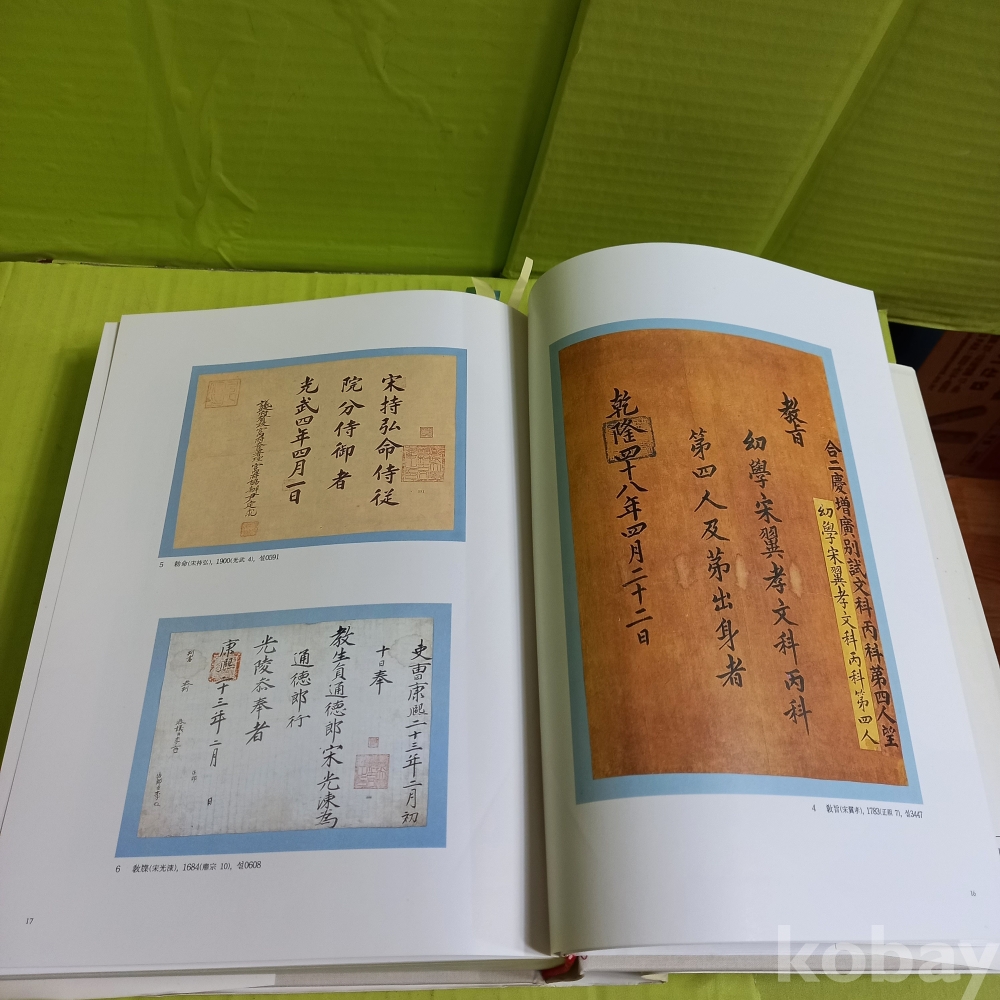 合二慶增廣別試文科丙科第四人望
幼學宋翼孝文科丙科第四人
敎旨
幼學宋翼孝文科丙科
第四人及第出身者
乾隆四十八年四月二十二日
4 敎旨(宋翼孝), 1783(正祖 7), 설3447
16
宋持弘命侍從
院分侍御者
光武四年四月一日
5 勅命(宋持弘), 1900(光武 4), 설0591
吏曹康熙二十三年二月初
十日奉
敎生員通德郎宋光洙為
通德郎行
光陵參奉者
康熙二十三年二月 日
6 敎牒(宋光洙), 1684(肅宗 10), 설0608
17
kobay